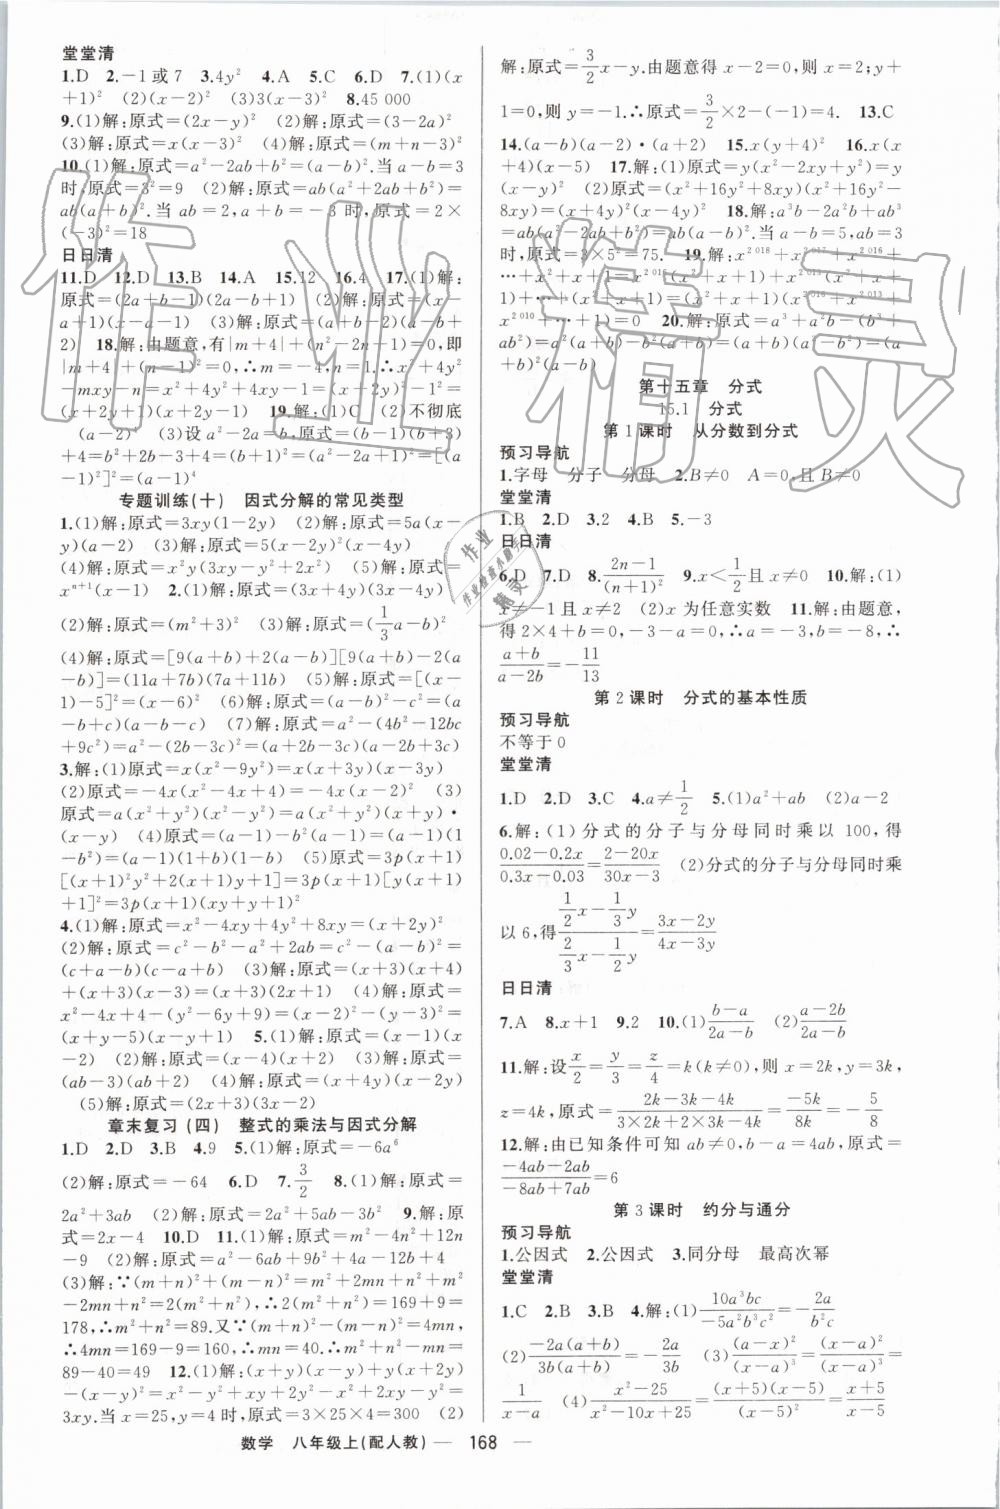 堂堂清
1.D 2.-1或7 3.4y² 4.A 5.C 6.D 7.(1)(x
+1)² (2)(x-2)² (3)3(x-3)² 8.45 000
9.(1)解:原式=(2x-y)² (2)解:原式=(3-2a)²
(3)解:原式=x(x-3)² (4)解:原式=(m+n-3)²
10.(1)解:原式=a²-2ab+b²=(a-b)².当a-b=3
时,原式=3²=9 (2)解:原式=ab(a²+2ab+b²)=
ab(a+b)².当ab=2,a+b=-3时,原式=2×
(-3)²=18
日日清
11.D 12.D 13.B 14.A 15.12 16.4 17.(1)解:
原式=(2a+b-1)(2a-b+1) (2)解:原式=(x+
a+1)(x-a-1) (3)解:原式=(a+b+2)(a-b+
2) 18.解:由题意,有|m+4|+(n²-2n+1)=0,即
|m+4|+(n-1)²=0,∴m=-4,n=1.∴x²+4y²
-mxy-n=x²+4y²+4xy-1=(x+2y)²-1²=
(x+2y+1)(x+2y-1) 19.解:(1)C (2)不彻底
(a-2)⁴ (3)设a²-2a=b,原式=(b-1)(b+3)
+4=b²+2b-3+4=(b+1)²=(a²-2a+1)²=
[(a-1)²]²=(a-1)⁴
专题训练(十) 因式分解的常见类型
1.(1)解:原式=3xy(1-2y) (2)解:原式=5a(x-
y)(a-2) (3)解:原式=5(x-2y)(x-4y)
(4)解:原式=x²y(3xy-2y+1) (5)解:原式=
xⁿ⁺¹(x-1) 2.(1)解:原式=(3x+4y)(3x-4y)
(2)解:原式=(m²+3)² (3)解:原式=(1/3a-b)²
(4)解:原式=[9(a+b)+2(a-b)][9(a+b)-2(a
-b)]=(11a+7b)(7a+11b) (5)解:原式=[(x-
1)-5]²=(x-6)² (6)解:原式=a²-(b-c)²=(a
-b+c)(a+b-c) (7)解:原式=a²-(4b²-12bc
+9c²)=a²-(2b-3c)²=(a+2b-3c)(a-2b+3c)
3.解:(1)原式=x(x²-9y²)=x(x+3y)(x-3y)
(2)原式=-4x(x²-4x+4)=-4x(x-2)² (3)
原式=a(x²+y²)(x²-y²)=a(x²+y²)(x+y)·
(x-y) (4)原式=(a-1)-b²(a-1)=(a-1)(1
-b²)=(a-1)(1+b)(1-b) (5)原式=3p(x+1)
[(x+1)²y²+2(x+1)y+1]=3p(x+1)[y(x+1)
+1]²=3p(x+1)(xy+y+1)²
4.(1)解:原式=x²-4xy+4y²+8xy=(x+2y)²
(2)解:原式=c²-b²-a²+2ab=c²-(a-b)²=
(c+a-b)(c-a+b) (3)解:原式=(x+3)(x+4)
+(x+3)(x-3)=(x+3)(2x+1) (4)解:原式=
x²-4x+4-(y²-6y+9)=(x-2)²-(y-3)²=
(x+y-5)(x-y+1) 5.(1)解:原式=(x-1)(x
-2) (2)解:原式=(x+4)(x-2) (3)解:原式=
(ab-3)(ab+2) (4)解:原式=(x+4y)(x-2y)
(5)解:原式=(2x+3)(3x-2)
章末复习(四) 整式的乘法与因式分解
1.D 2.D 3.B 4.9 5.(1)解:原式=-6a⁶
(2)解:原式=-64 6.D 7.3/2 8.(1)解:原式=
2a²+3ab (2)解:原式=2a²+5ab-3b² 9.解:原
式=2x-4 10.D 11.(1)解:原式=m²-4n²+12n
-9 (2)解:原式=a²-6ab+9b²-4a+12b+4
(3)解:∵(m+n)²+(m-n)²=m²+2mn+n²+m²
-2mn+n²=2(m²+n²),∴2(m²+n²)=169+9=
178,∴m²+n²=89.又∵(m+n)²-(m-n)²=4mn,
∴4mn=169-9=160,∴mn=40.∴m²+n²-mn=
89-40=49 12.(1)解:(x+y)(x-y)+y(x+2y)
-(x-y)²=x²-y²+xy+2y²-x²+2xy-y²=
3xy.当x=25,y=4时,原式=3×25×4=300 (2)
解:原式=3/2x-y.由题意得x-2=0,则x=2;y+
1=0,则y=-1.∴原式=3/2×2-(-1)=4. 13.C
14.(a-b)(a-2)·(a+2) 15.x(y+4)² 16.x(x
+4)(x-5) 17.解:(1)原式=y(x²-2xy+y²)=y(x
-y)² (2)原式=(x²+16y²+8xy)(x²+16y²-
8xy)=(x+4y)²(x-4y)² 18.解:a³b-2a²b²+ab³
=ab(a²-2ab+b²)=ab(a-b)².当a-b=5,ab=3
时,原式=3×5²=75. 19.解:x²⁰¹⁸+x²⁰¹⁷+x²⁰¹⁶+
…+x²+x+1=x²⁰¹⁶(x²+x+1)+x²⁰¹³(x²+x+
1)+…+(x²+x+1)=(x²+x+1)(x²⁰¹⁶+x²⁰¹³+
x²⁰¹⁰+…+1)=0 20.解:原式=a³+a²b-(b³+
ab²)=a²(a+b)-b²(a+b)=(a+b)(a²-b²)=(a+
b)²(a-b)
第十五章 分式
15.1 分式
第1课时 从分数到分式
预习导航
1.字母 分子 分母 2.B≠0 A=0且B≠0
堂堂清
1.B 2.D 3.2 4.B 5.-3
日日清
6.D 7.D 8.(2n-1)/(n+1)² 9.x<1/2且x≠0 10.解:(1)
x≠-1且x≠2 (2)x为任意实数 11.解:由题意,
得2×4+b=0,-3-a=0;∴a=-3,b=-8,∴
(a+b)/(a-2b)=-11/13
第2课时 分式的基本性质
预习导航
不等于0
堂堂清
1.D 2.D 3.C 4.a≠1/2 5.(1)a²+ab (2)a-2
6.解:(1)分式的分子与分母同时乘以100,得
(0.02-0.2x)/(0.3x-0.03)=(2-20x)/(30x-3) (2)分式的分子与分母同时乘
以6,得(1/2x-1/3y)/(2/3x-1/2y)=(3x-2y)/(4x-3y)
日日清
7.A 8.x+1 9.2 10.(1)(b-a)/(2a-b) (2)(a-2b)/(2a-b)
11.解:设x/2=y/3=z/4=k(k≠0),则x=2k,y=3k,
z=4k,原式=(2k-3k-4k)/(3×2k+2×3k-4k)=-5k/8k=-5/8
12.解:由已知条件可知b-a=4ab,原式=
(-4ab-2ab)/(-8ab+7ab)=6
第3课时 约分与通分
预习导航
1.公因式 2.公因式 3.同分母 最高次幂
堂堂清
1.C 2.B 3.B 4.解:(1)10a³bc/(-5a²b³c²)=-2a/(b²c)
(2)-2a(a+b)/3b(a+b)=-2a/3b (3)(a-x)²/(x-a)³=(x-a)²/(x-a)³=
1/(x-a) (4)(x²-25)/(x²-10x+25)=(x+5)(x-5)/(x-5)²=(x+5)/(x-5)
数学 八年级上(配人教) — 168 —
作业精灵
作业
作业检查小助手
精灵